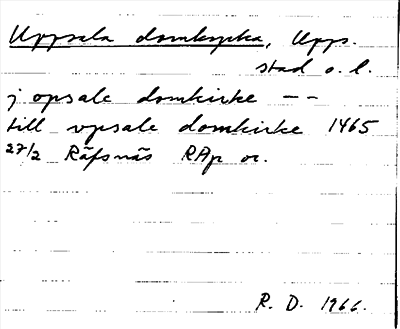 Uppsala domkyrka, Upps.
stad o. l.
j opsale domkirke --
till vpsale domkirke 1465
27/2 Räfsnäs RAp or.
R. D. 1966.